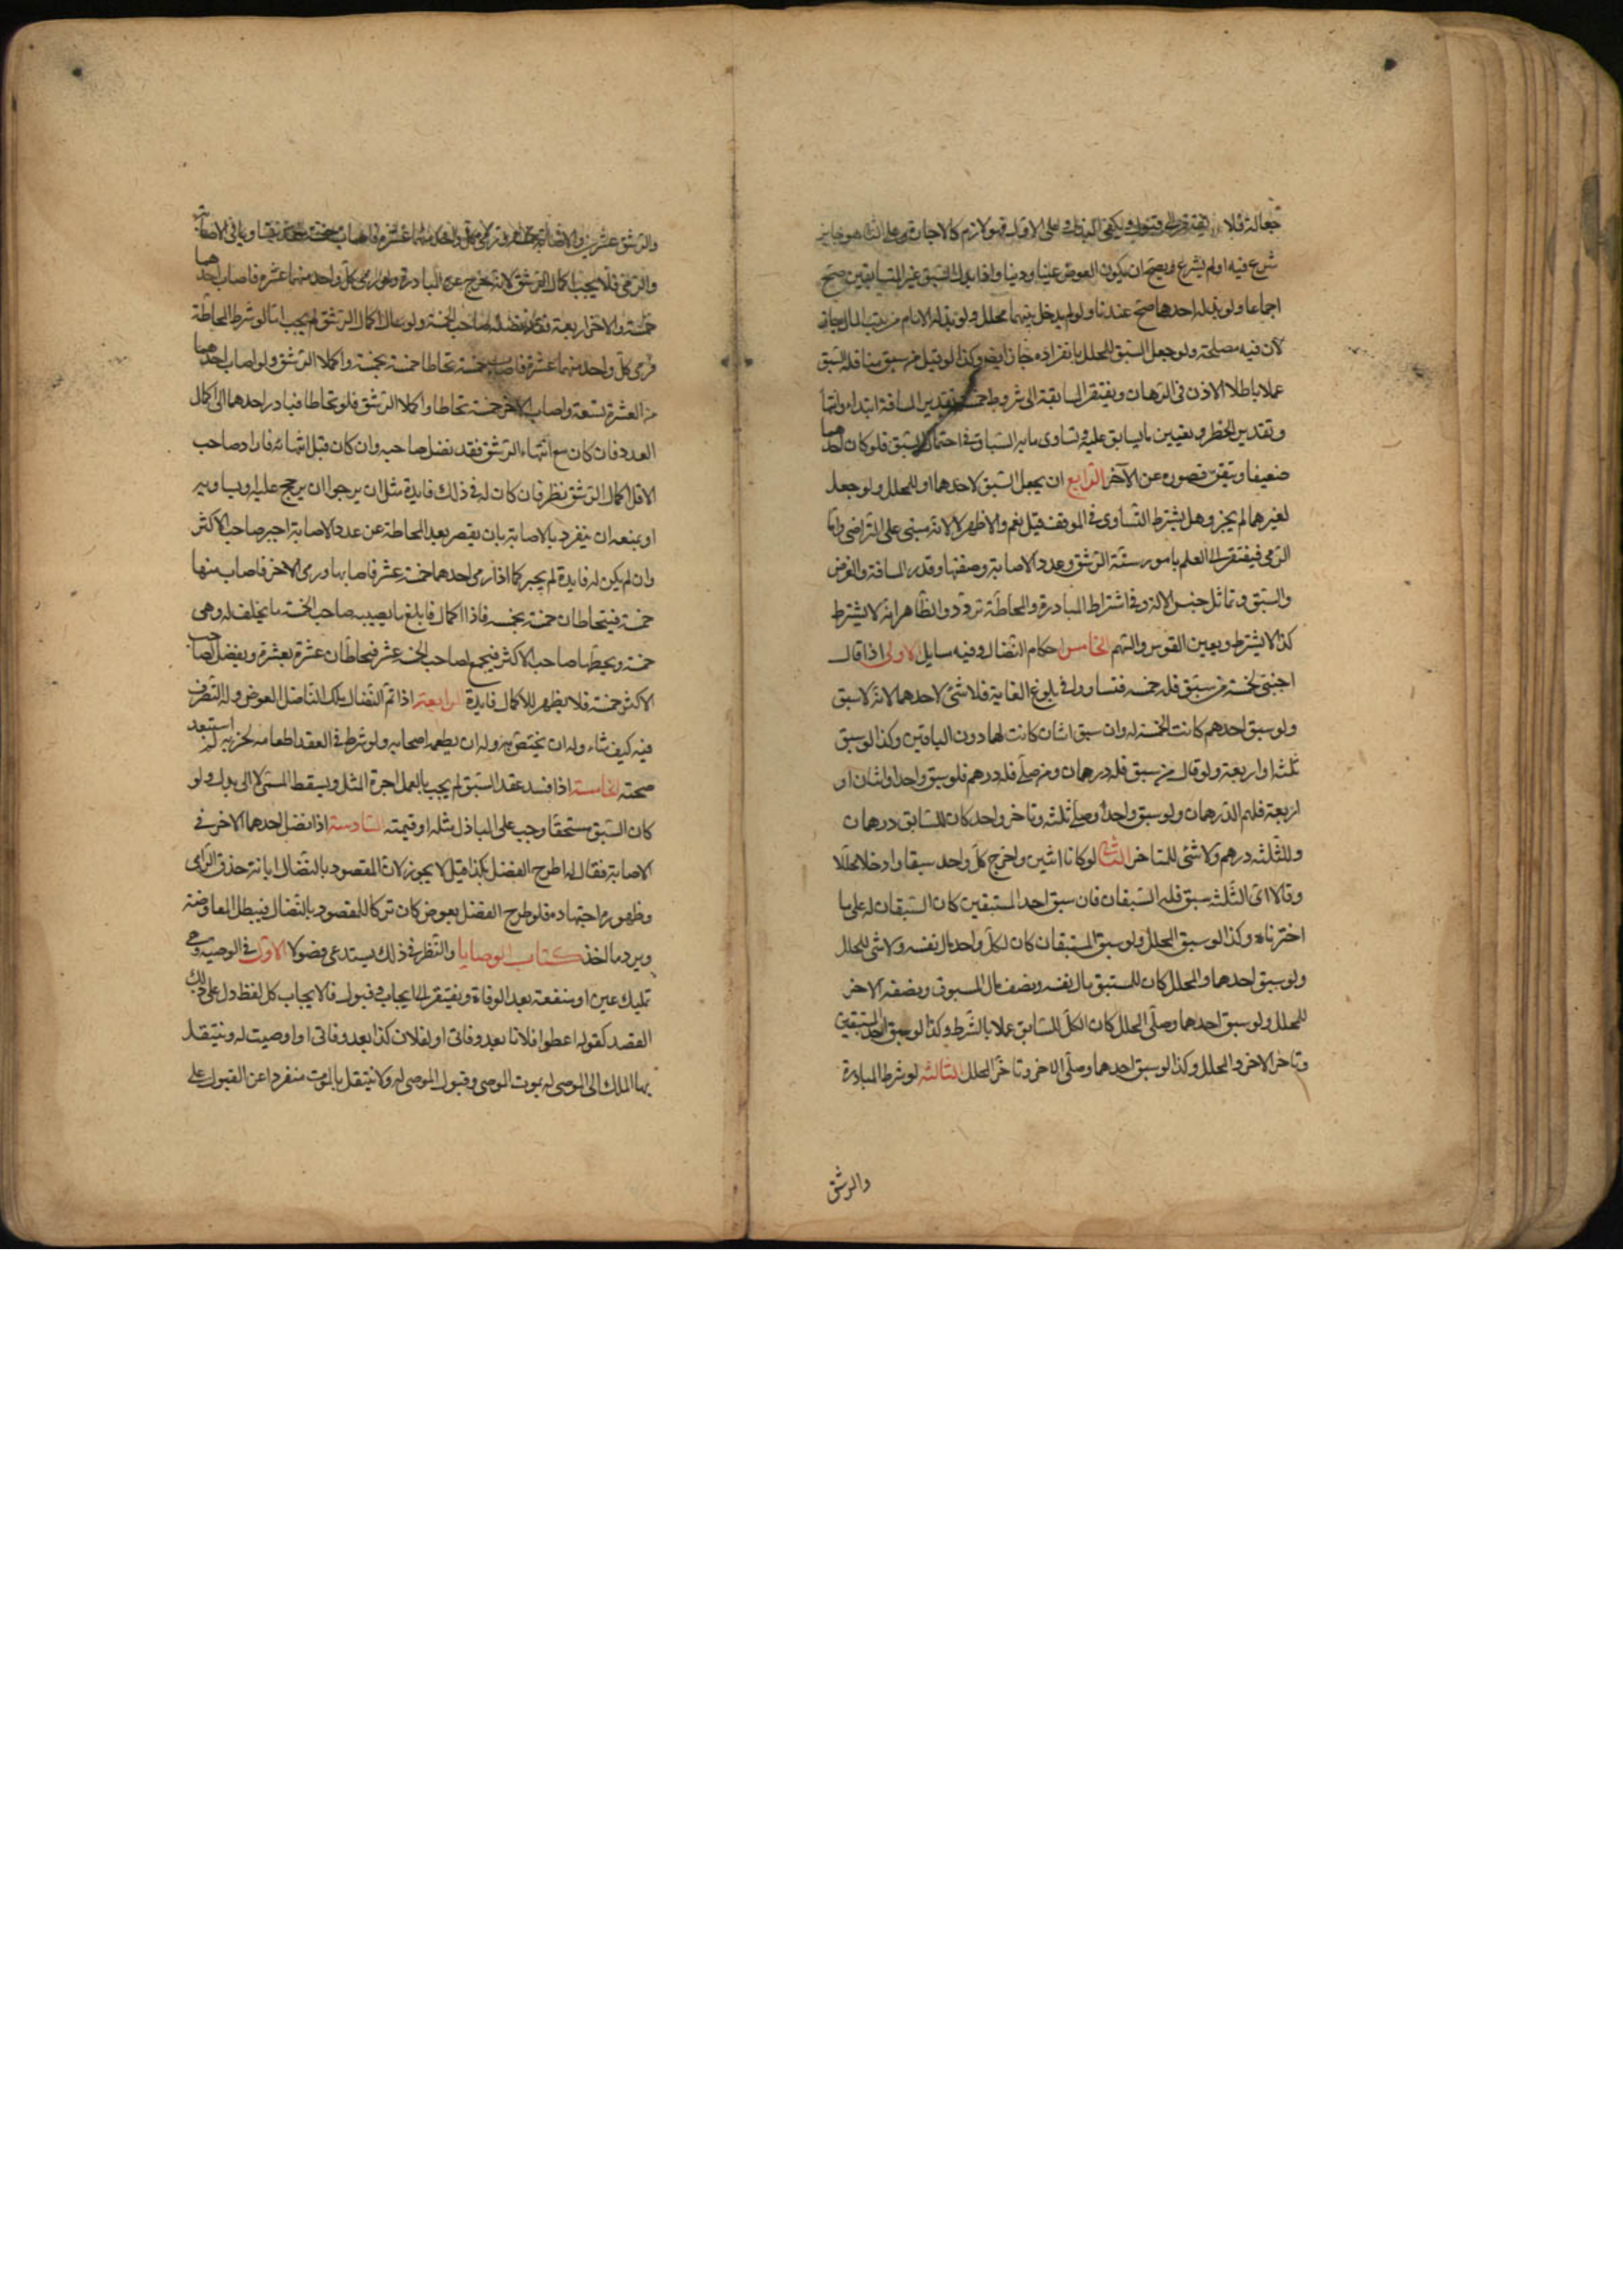 جعالة فلا يفتقر الى قبول ويكفى البذل وعلى الاول فهو لازم كالاجارة وعلى الثانى هو جايز
شرع فيه او لم يشرع ويصح ان يكون العوض عينا ودينا واذا بذل السبق غير المتسابقين صح
اجماعا ولو بذله احدهما صح عندنا ولو لم يدخل بينهما محلل ولو بذله الامام من بيت المال جاز
لان فيه مصلحة ولو جعل السبق للمحلل بانفراده جاز ايضا وكذا لو قيل من سبق منا فله السبق
عملا باطلاق الاذن فى الرهان ويفتقر المسابقة الى شروط خمسة تقدير المسافة ابتداء وانتهاء
وتقدير الخطر وتعيين ما يسابق عليه وتساوى ما به السباق فى احتمال السبق فلو كان احدهما
ضعيفا وتيقن قصوره عن الآخر الرابع ان يجعل السبق لاحدهما او للمحلل ولو جعل
لغيرهما لم يجز وهل يشترط التساوى فى الموقف قيل نعم والاظهر لا لانه مبنى على التراضى واما
الرمى فيفتقر الى العلم بامور ستة الرشق وعدد الاصابة وصفتها وقدر المسافة والغرض
والسبق وتماثل جنس الالة وفى اشتراط المبادرة والمحاطة تردد والظاهر انه لا يشترط
كذا لا يشترط تعيين القوس والسهم الخامس احكام النضال وفيه مسايل الاولى اذا قال
اجنبى لخمسة من سبق فله خمسة فتساووا فى بلوغ الغاية فلا شئ لاحدهم لانه لا سبق
ولو سبق احدهم كانت الخمسة له وان سبق اثنان كانت لهما دون الباقين وكذا لو سبق
ثلثة او اربعة ولو قال من سبق فله درهمان ومن صلى فله درهم فلو سبق واحد او اثنان او
اربعة فلهم الدرهمان ولو سبق واحد وصلى ثلثة وتاخر واحد كان للسابق درهمان
وللثلثة درهم ولا شئ للمتاخر الثانية لو كانا اثنين واخرج كل واحد سبقا وادخلا محللا
وقالا اى الثلثة سبق فله السبقان فان سبق احد المستبقين كان السبقان له على ما
اخترناه وكذا لو سبق المحلل ولو سبق المستبقان كان لكل واحد مال نفسه ولا شئ للمحلل
ولو سبق احدهما والمحلل كان للمستبق مال نفسه ونصف مال المسبوق ونصفه الاخر
للمحلل ولو سبق احدهما وصلى المحلل كان الكل للسابق عملا بالشرط وكذا لو سبق احد المستبقين
وتاخر الاخر والمحلل وكذا لو سبق احدهما وصلى الاخر وتاخر المحلل الثالثة لو شرط المبادرة
والرشق
والرشق عشرين والاصابة خمسة فرمى كل واحد منهما عشرة فاصاب خمسة فقد تساويا فى الاصابة
والرمى فلا يجب اكمال الرشق لانه يخرج عن المبادرة ولو رمى كل واحد منهما عشرة فاصاب احدهما
خمسة والاخر اربعة فقد نضله صاحب الخمسة ولو سال اكمال الرشق لم يجب اما لو شرط المحاطة
فرمى كل واحد منهما عشرة فاصاب خمسة تحاطا خمسة بخمسة واكملا الرشق ولو اصاب احدهما
من العشرة تسعة واصاب الاخر خمسة تحاطا واكملا الرشق فلو تحاطا فبادر احدهما الى اكمال
العدد فان كان مع انتهاء الرشق فقد نضل صاحبه وان كان قبل انتهائه فاراد صاحب
الاقل اكمال الرشق نظر فان كان له فى ذلك فايدة مثل ان يرجوا ان يرجح عليه او يساويه
او يمنعه ان ينفرد بالاصابة بان يقصر بعد المحاطة عن عدد الاصابة اجبر صاحب الاكثر
وان لم يكن له فايدة لم يجبر كما اذا رمى احدهما خمسة عشر فاصابها ورمى الاخر فاصاب منها
خمسة فيتحاطان خمسة بخمسة فاذا اكمال فابلغ ما يصيبه صاحب الخمسة ما يخلف له وهى
خمسة ويخطيها صاحب الاكثر فيجمع لصاحب الخمسة عشر فيحاطان عشرة بعشرة ويفضل لصاحب
الاكثر خمسة فلا يظهر للاكمال فايدة الرابعة اذا تم النضال ملك الناضل العوض وله التصرف
فيه كيف شاء وله ان يختص به وله ان يطعمه اصحابه ولو شرط فى العقد اطعامه لحزبه لم استبعد
صحته الخامسة اذا فسد عقد السبق لم يجب بالعمل اجرة المثل ويسقط المسمى لا الى بدل ولو
كان السبق مستحقا وجب على الباذل مثله او قيمته السادسة اذا نضل احدهما الاخر فى
الاصابة فقال له اطرح الفضل بكذا قيل لا يجوز لان المقصود بالنضال ابانة حذق الرامى
وظهور اجتهاده فلو طرح الفضل بعوض كان تركا للمقصود بالنضال فيبطل المعاوضة
ويرد ما اخذ كتاب الوصايا والنظر فى ذلك يستدعى فصولا الاول فى الوصية وهى
تمليك عين او منفعة بعد الوفاة ويفتقر الى ايجاب وقبول فالايجاب كل لفظ دل على ذلك
القصد كقوله اعطوا فلانا بعد وفاتى او لفلان كذا بعد وفاتى او اوصيت له وينتقل
بها الملك الى الموصى له بموت الموصى وقبول الموصى له ولا ينتقل بالموت منفردا عن القبول على